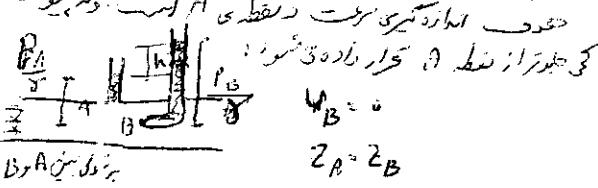 هدف اندازه گیری سرعت در نقطه ی A است. لوله پیتو
کمی جلوتر از نقطه A قرار داده می شود:
P_A/γ h P_B/γ
A B
V_B = 0
Z_A = Z_B
برنولی بین A و B